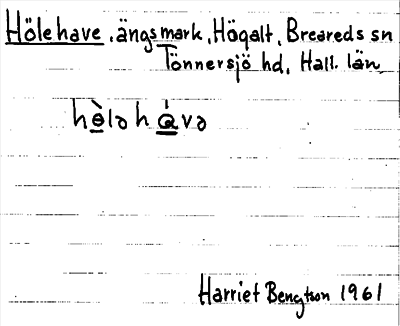 Hölehave, ängsmark, Högalt, Breareds sn
Tönnersjö hd, Hall. län
hɵ̀ləhàvə
Harriet Bengtson 1961